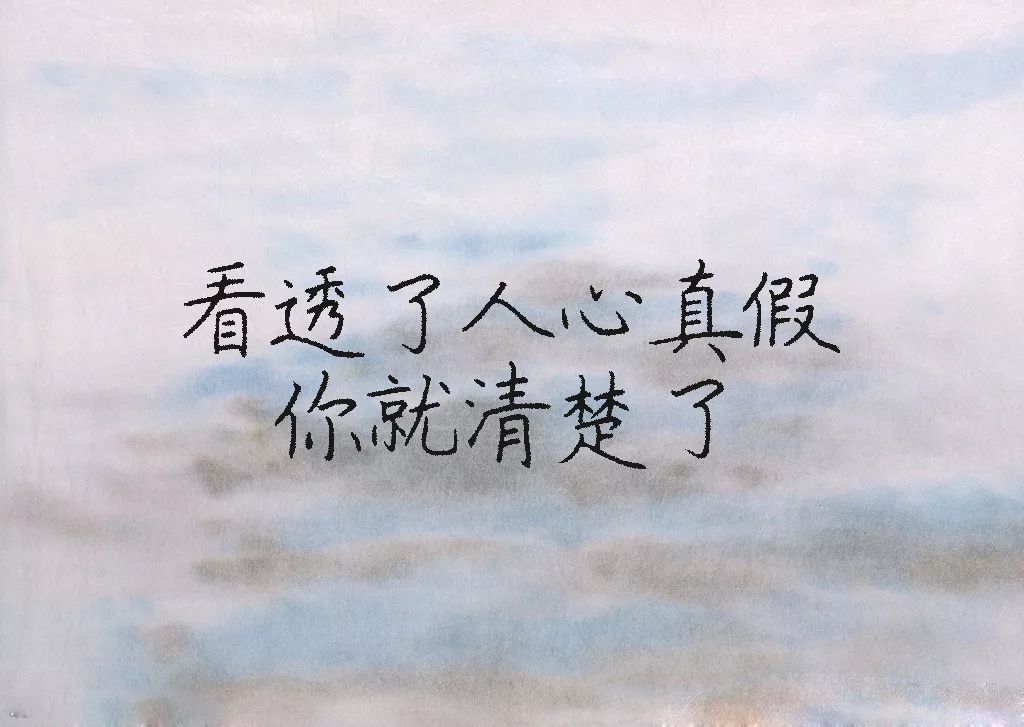 看透了人心真假
你就清楚了